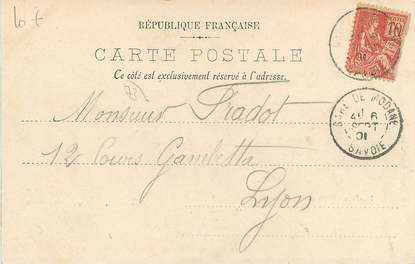 10 f
RÉPUBLIQUE FRANÇAISE
CARTE POSTALE
Ce côté est exclusivement réservé à l'adresse.
Monsieur Fradot
12 Cours Gambetta
Lyon
GARE DE MODANE
6
SEPT
01
SAVOIE